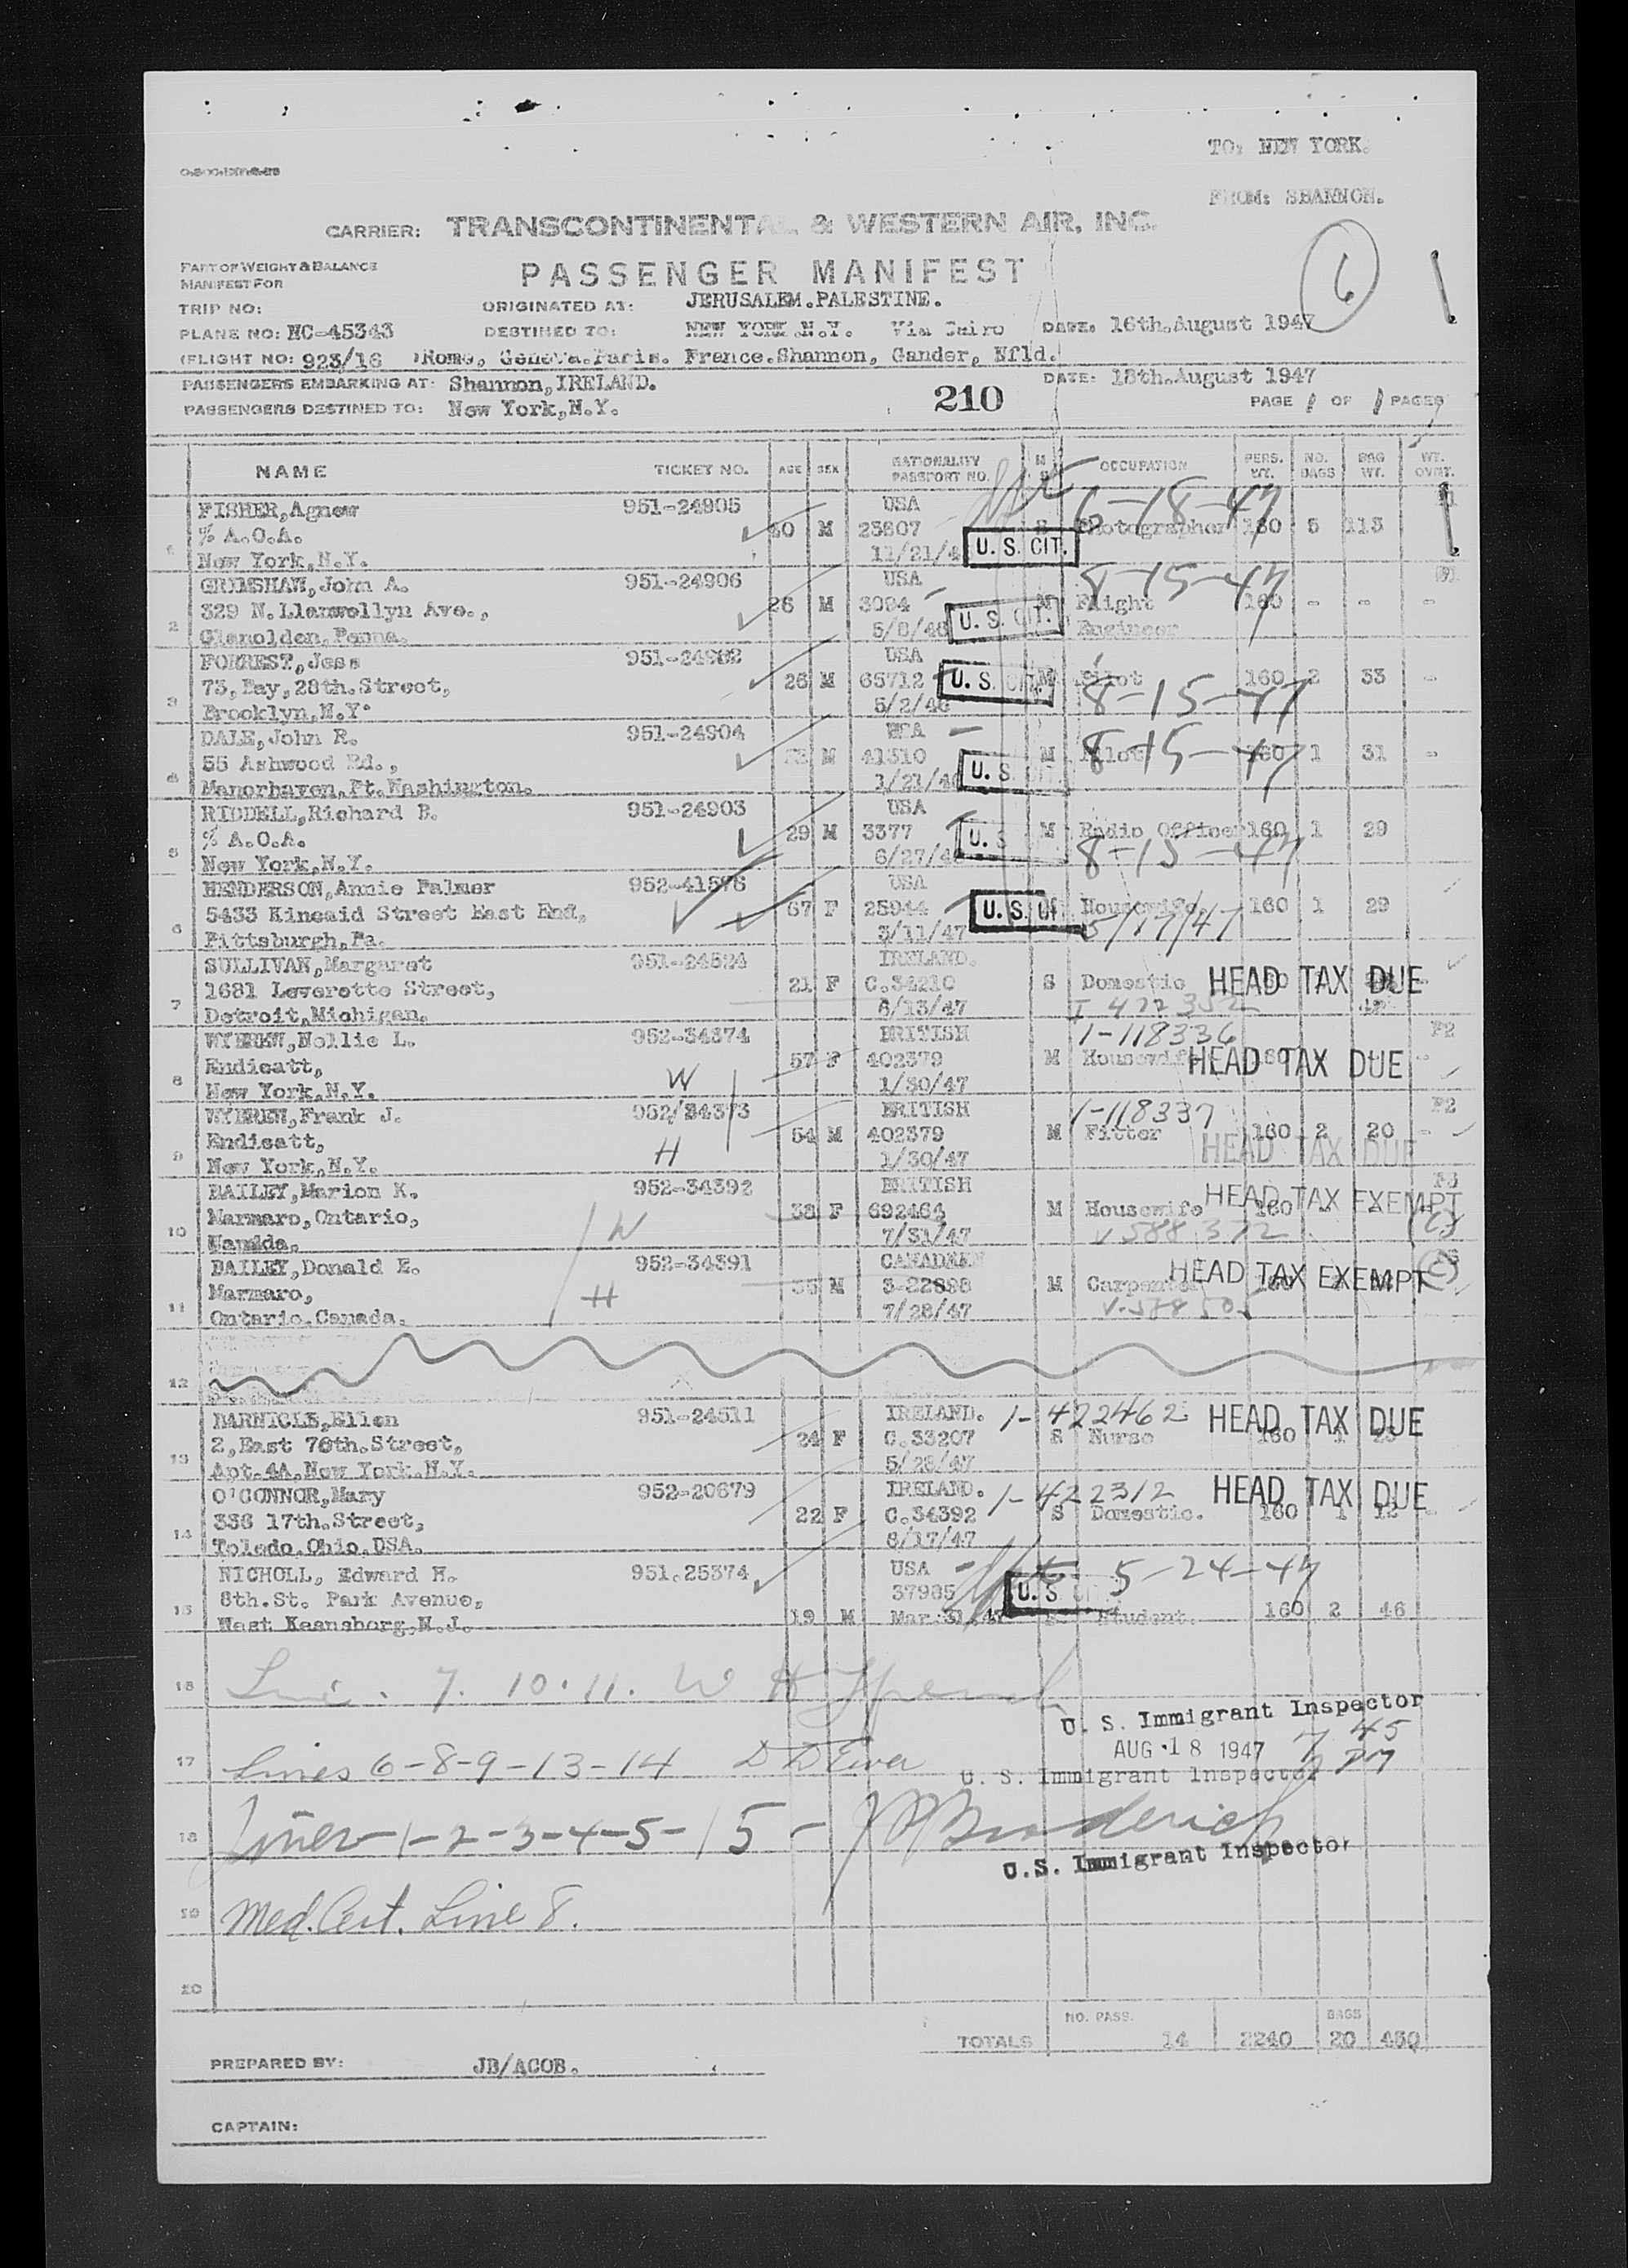 TO: NEW YORK.
FROM: SHANNON.
CARRIER: TRANSCONTINENTAL & WESTERN AIR, INC.
PART OF WEIGHT & BALANCE
MANIFEST FOR
PASSENGER MANIFEST
6
TRIP NO: ORIGINATED AT: JERUSALEM.PALESTINE.
PLANE NO: NC-45343 DESTINED TO: NEW YORK.N.Y. Via Cairo DATE: 16th.August 1947
(FLIGHT NO: 923/16 )Rome, Geneva.Paris. France.Shannon, Gander, Nfld.
PASSENGERS EMBARKING AT: Shannon,IRELAND. DATE: 18th.August 1947
PASSENGERS DESTINED TO: New York,N.Y. 210 PAGE 1 OF 1 PAGES
NAME TICKET NO. AGE SEX NATIONALITY PASSPORT NO. M S OCCUPATION PERS. WT. NO. BAGS BAG WT. WT. OVWT.
FISHER,Agnew 951-24905 USA 6-18-47
% A.O.A. 40 M 23807 S Photographer 160 5 113
1 New York,N.Y. 11/21/4 U. S. CIT.
GRIMSHAW,John A. 951-24906 USA 8-15-47
329 N.Llanwellyn Ave., 26 M 3094 M Flight 160 - - -
2 Glenolden.Penna. 5/8/46 U. S. CIT. Engineer
FORREST,Jess 951-24982 USA
73,Bay,28th.Street, 26 M 65712 U. S. CIT. M Pilot 160 2 33 -
3 Brooklyn,N.Y. 5/2/46 8-15-47
DALE,John R. 951-24904 USA
55 Ashwood Rd., M 41310 M Pilot 8-15-47 160 1 31 -
4 Manorhaven.Pt.Washington. 1/21/46 U. S. CIT.
RIDDELL,Richard B. 951-24903 USA
% A.O.A. 29 M 3377 U. S M Radio Officer 160 1 29
5 New York,N.Y. 6/27/46 8-15-47
HENDERSON,Annie Palmer 952-41576 USA
5433 Kincaid Street East End, 67 F 25944 U. S. CIT Housewife 160 1 29
6 Pittsburgh,Pa. 3/11/47 5/17/47
SULLIVAN,Margaret 951-24524 IRELAND.
1681 Leverette Street, 21 F C.34210 S Domestic HEAD TAX DUE
7 Detroit,Michigan. 6/13/47 I 422352
WYBREW,Nellie L. 952-34374 BRITISH 1-118336 F2
Endicatt, 57 F 402379 M Housewife HEAD TAX DUE
8 New York.N.Y. W 1/30/47
WYBREW,Frank J. 952/34373 BRITISH 1-118337 F2
Endicatt, 54 M 402379 M Fitter 160 2 20 -
9 New York,N.Y. H 1/30/47 HEAD TAX DUE
BAILEY,Marion K. 952-34392 BRITISH HEAD TAX EXEMPT
Marmaro,Ontario, W 38 F 692464 M Housewife 160
10 Canada. 7/31/47 V 588372
BAILEY,Donald E. 952-34391 CANADEEN
Marmaro, H 35 M 3-22898 M Carpenter HEAD TAX EXEMPT
11 Ontario.Canada. 7/28/47
12
BARNICLE,Ellen 951-24511 IRELAND. 1-422462 HEAD TAX DUE
2,East 78th.Street, 24 F C.33207 S Nurse 160 1
13 Apt.4A,New York.N.Y. 5/28/47
O'CONNOR,Mary 952-20679 IRELAND. 1-422312 HEAD TAX DUE
336 17th.Street, 22 F C.34392 S Domestic. 160 1 12
14 Toledo.Ohio.USA. 6/17/47
NICHOLL, Edward H. 951.25374 USA 5-24-47
8th.St. Park Avenue, 37985 U. S CI
15 West Keansborg,N.J. 19 M Mar.31.47 S Student. 160 2 46
16 7. 10. 11.
U. S. Immigrant Inspector
AUG 18 1947 7 45 PM
17 Lines 6-8-9-13-14
U. S. Immigrant Inspector
18 Lines 1-2-3-4-5-15- Broderick
U.S. Immigrant Inspector
19 Med. Cert. Line 8.
20
TOTALS NO. PASS. 14 2240 BAGS 20 450
PREPARED BY: JB/ACOB.
CAPTAIN: